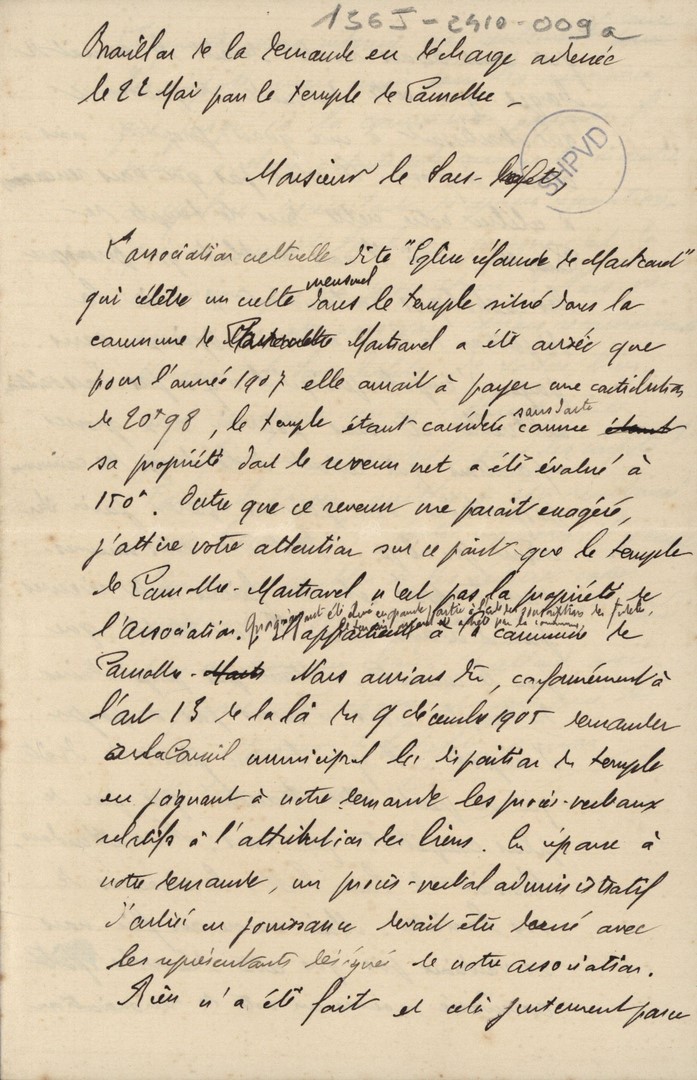 136J-2410-009a
Brouillon de la demande en décharge adressée
le 22 Mai pour le temple de Lamothe -
SHPVD
Monsieur le Sous-Préfet
L'association cultuelle dite "Eglise réformée de Montcaret"
qui célèbre un culte mensuel dans le temple situé dans la
commune de Montravel a été avisée que
pour l'année 1907 elle aurait à payer une contribution
de 20f98, le temple étant considéré sans doute comme étant
sa propriété dont le revenu net a été évalué à
150f. Outre que ce revenu me parait exagéré,
j'attire votre attention sur ce point que le temple
de Lamothe-Montravel n'est pas la propriété de
l'association. Quoiqu'ayant été élevé en grande partie à l'aide des souscriptions des fidèles,
il appartient à la commune de
Lamothe- Nous aurions dû, conformément à
l'art 13 de la loi du 9 décembre 1905 demander
au Conseil municipal la disposition du temple
en joignant à notre demande les procès-verbaux
relatifs à l'attribution des biens. En réponse à
notre demande, un procès-verbal administratif
d'entrée en jouissance devait être dressé avec
les représentants désignés de notre association.
Rien n'a été fait et cela justement parce